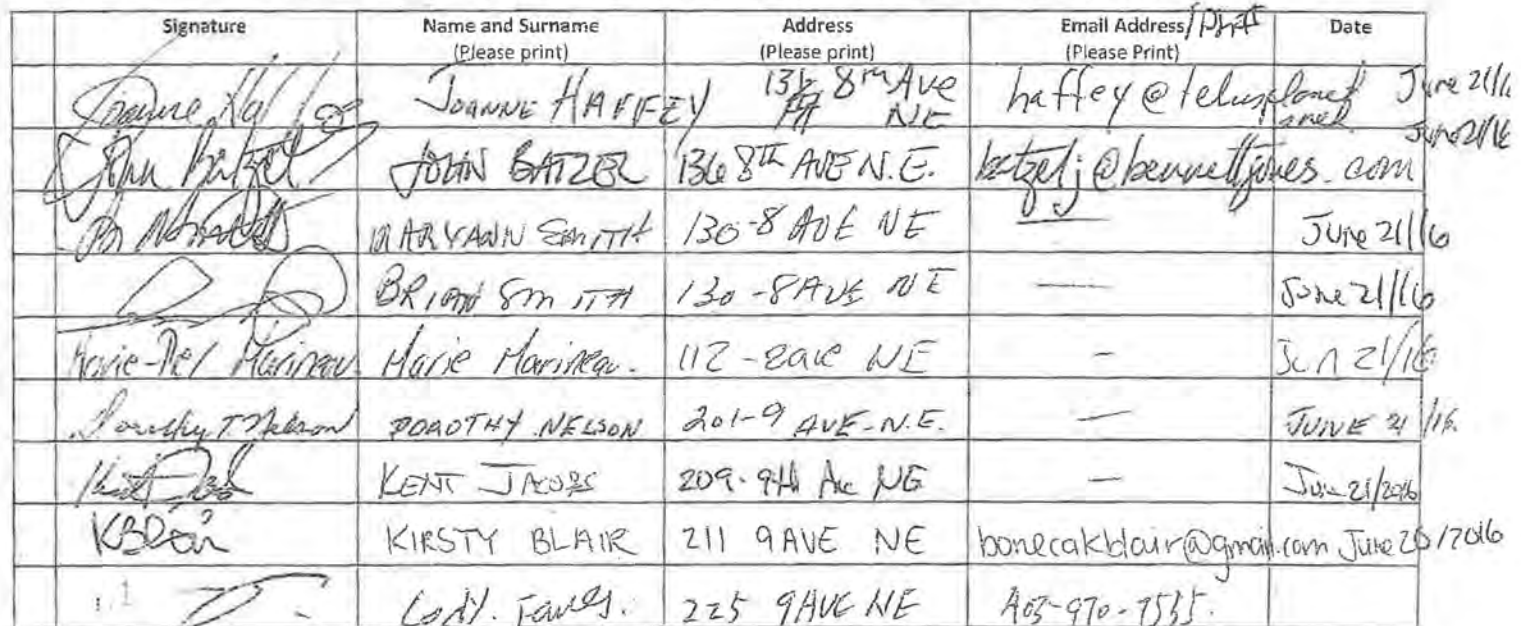 Signature Name and Surname Address Email Address/ Date
(Please print) (Please print) (Please Print)
Joanne Haffey JOANNE HAFFEY 136 8th Ave NE haffey@telusplanet June 21/16
John Batzel JOHN BATZEL 136 8TH AVE N.E. batzelj@bennettjones.com June 21/16
MARYANN SMITH 130-8 AVE NE — June 21/16
BRIAN SMITH 130-8 AVE NE — June 21/16
Marineau Marie Marineau. 112-8ave NE - Jun 21/16
Dorothy T. Nelson DOROTHY NELSON 201-9 AVE-N.E. — JUNE 21/16.
KENT JACOBS 209-9th Ave NE — June 21/2016
KBlair KIRSTY BLAIR 211 9AVE NE bonecakblair@gmail.com June 2 /2016
225 9AVE NE